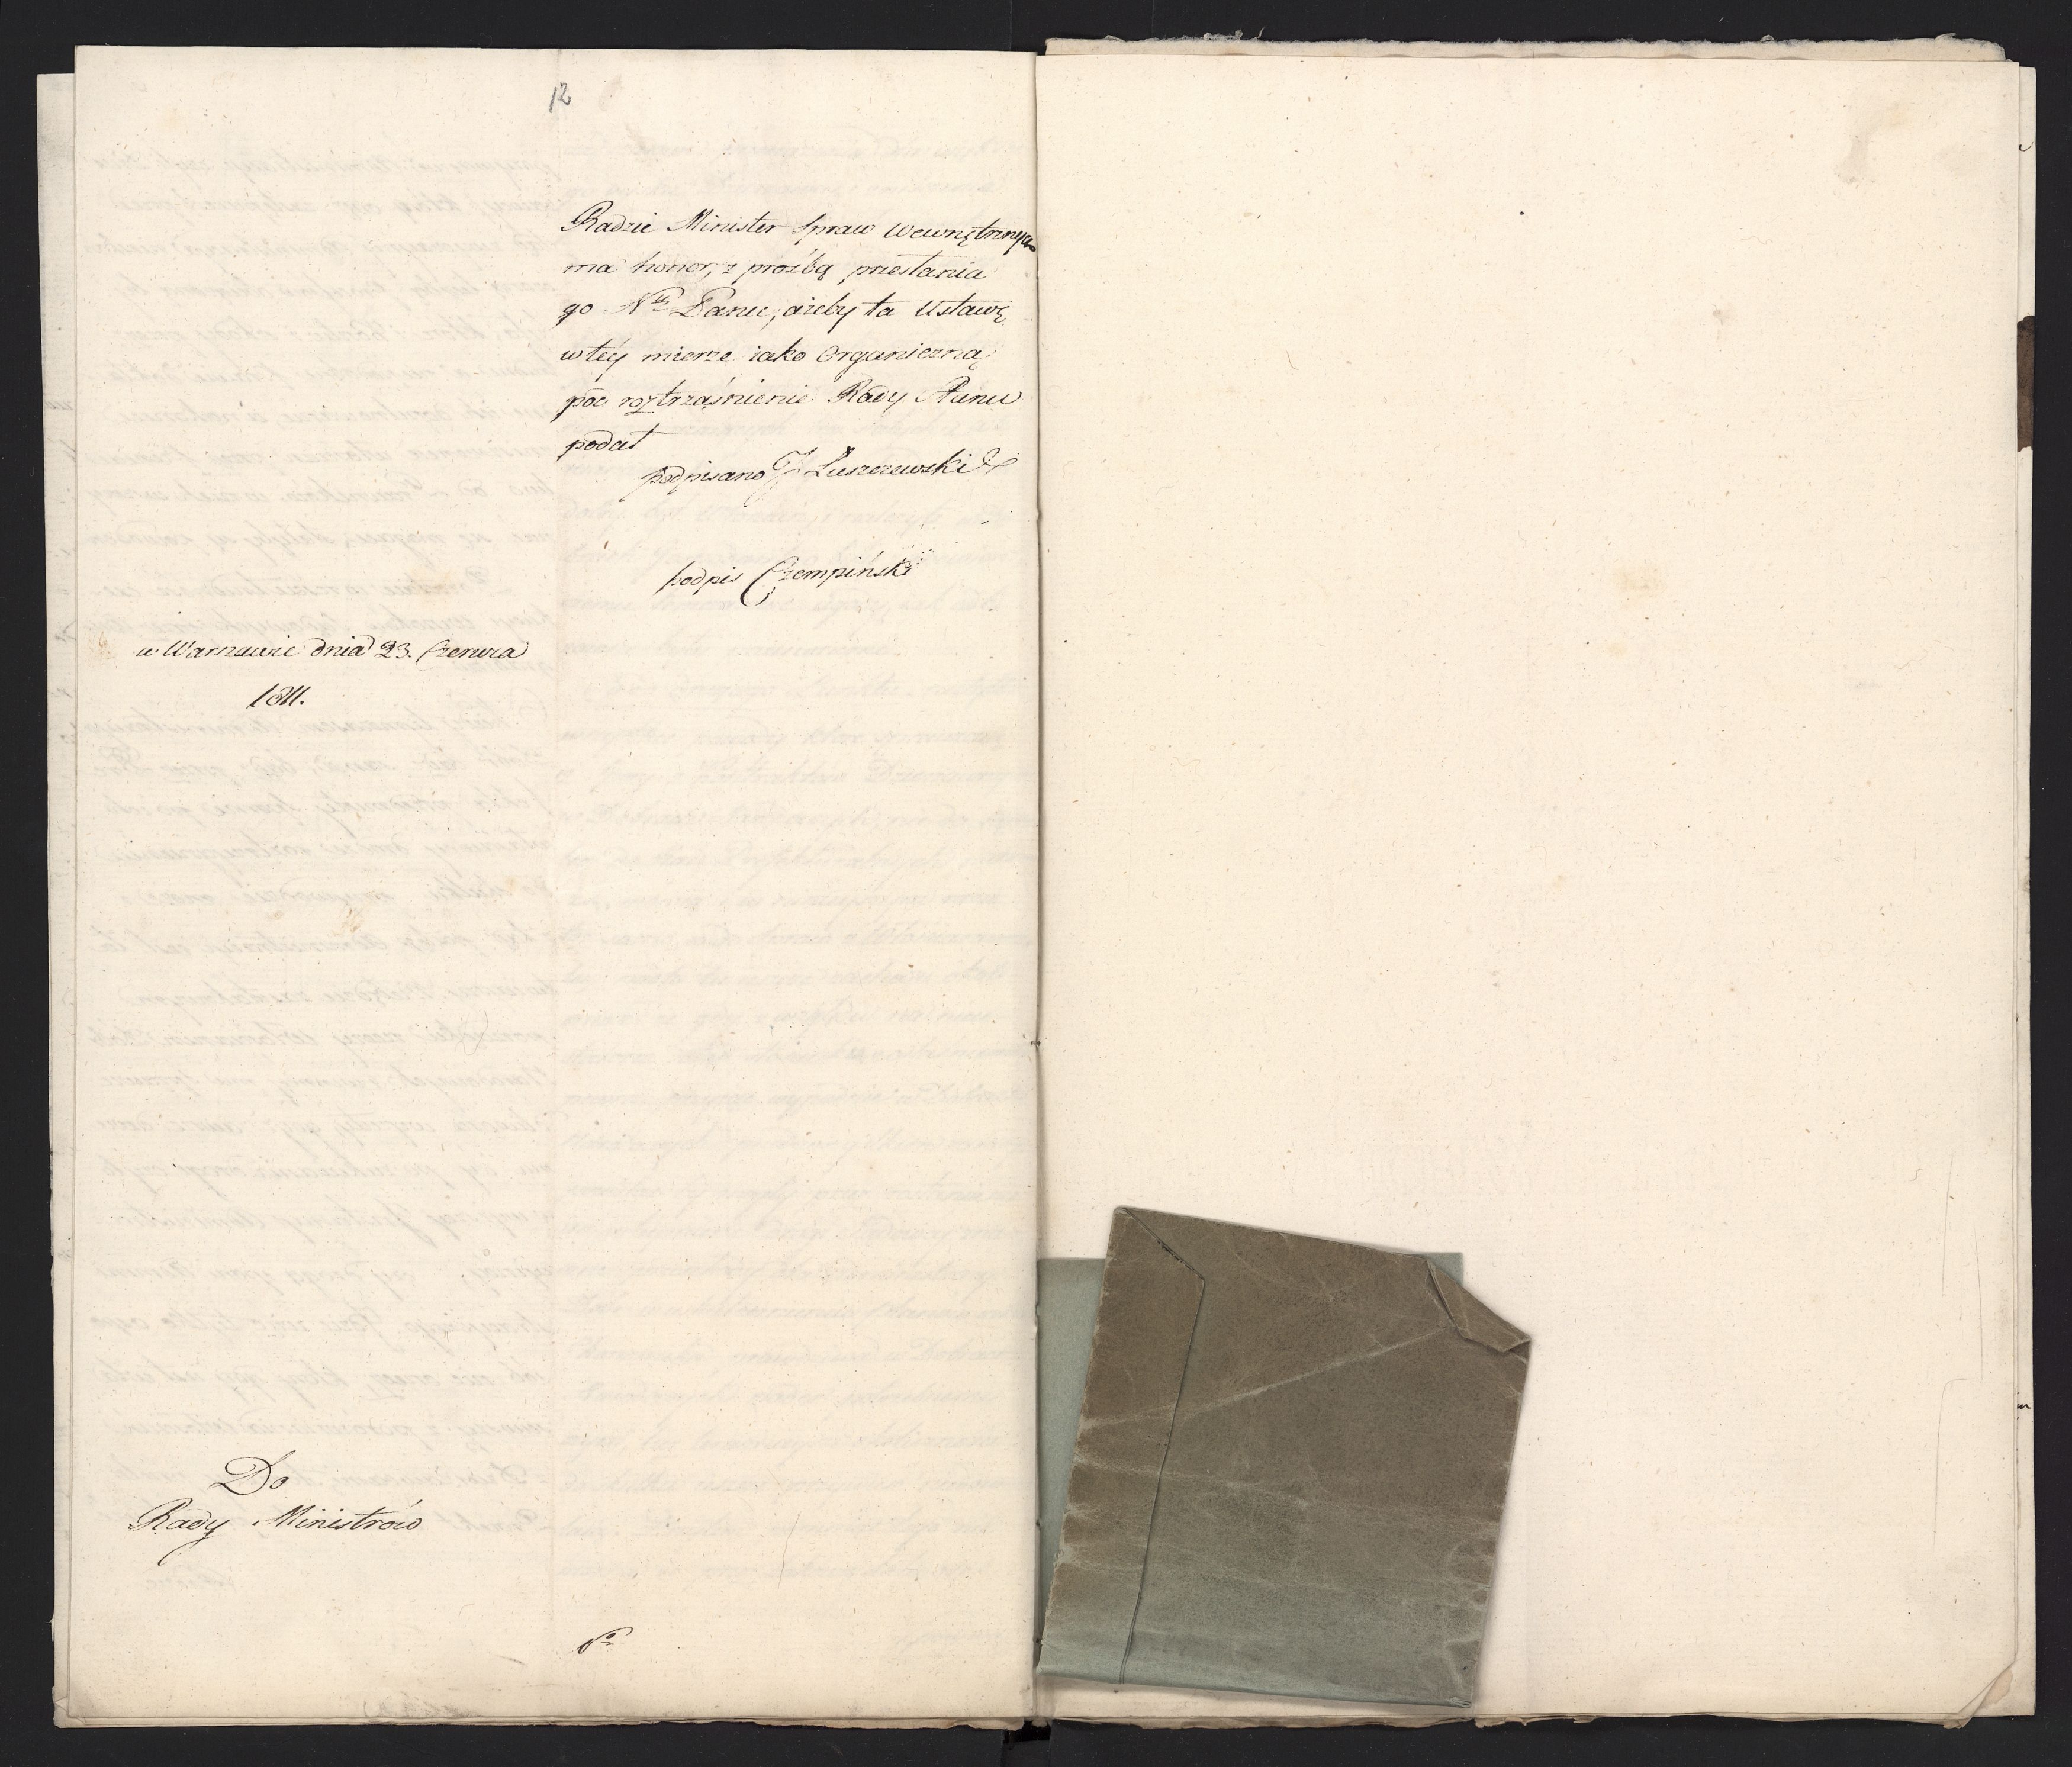 12
Radzie Minister Spraw Wewnętrznych
ma honor, z proźbą przesłania
go Nu Panu, ażeby ta Ustawę
w téy mierze iako Organiczną
pod roztrząśnienie Rady Stanu
podał
podpisano J Łuszczewski
podpis Czempiński
w Warszawie dnia 23. Czerwca
1811.
Do
Rady Ministrów